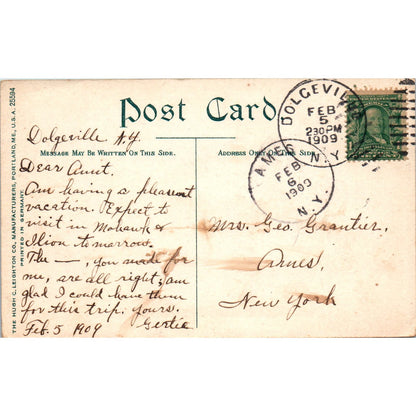 Post Card
MESSAGE MAY BE WRITTEN ON THIS SIDE.
ADDRESS ONLY ON THIS SIDE.
THE HUGH C. LEIGHTON CO., MANUFACTURERS, PORTLAND, ME., U.S.A. 25594
PRINTED IN GERMANY.
DOLGEVILLE
FEB
5
230PM
1909
N.Y.
AMES
FEB
6
1909
N.Y.
Dolgeville N.Y.
Dear Aunt.
Am having a pleasant
vacation. Expect to
visit in Mohawk &
Ilion tomorrow.
The —, you made for
me, are all right; am
glad I could have them
for this trip. yours.
Feb. 5 1909 Gertie
Mrs. Geo. Grantier,
Ames,
New York